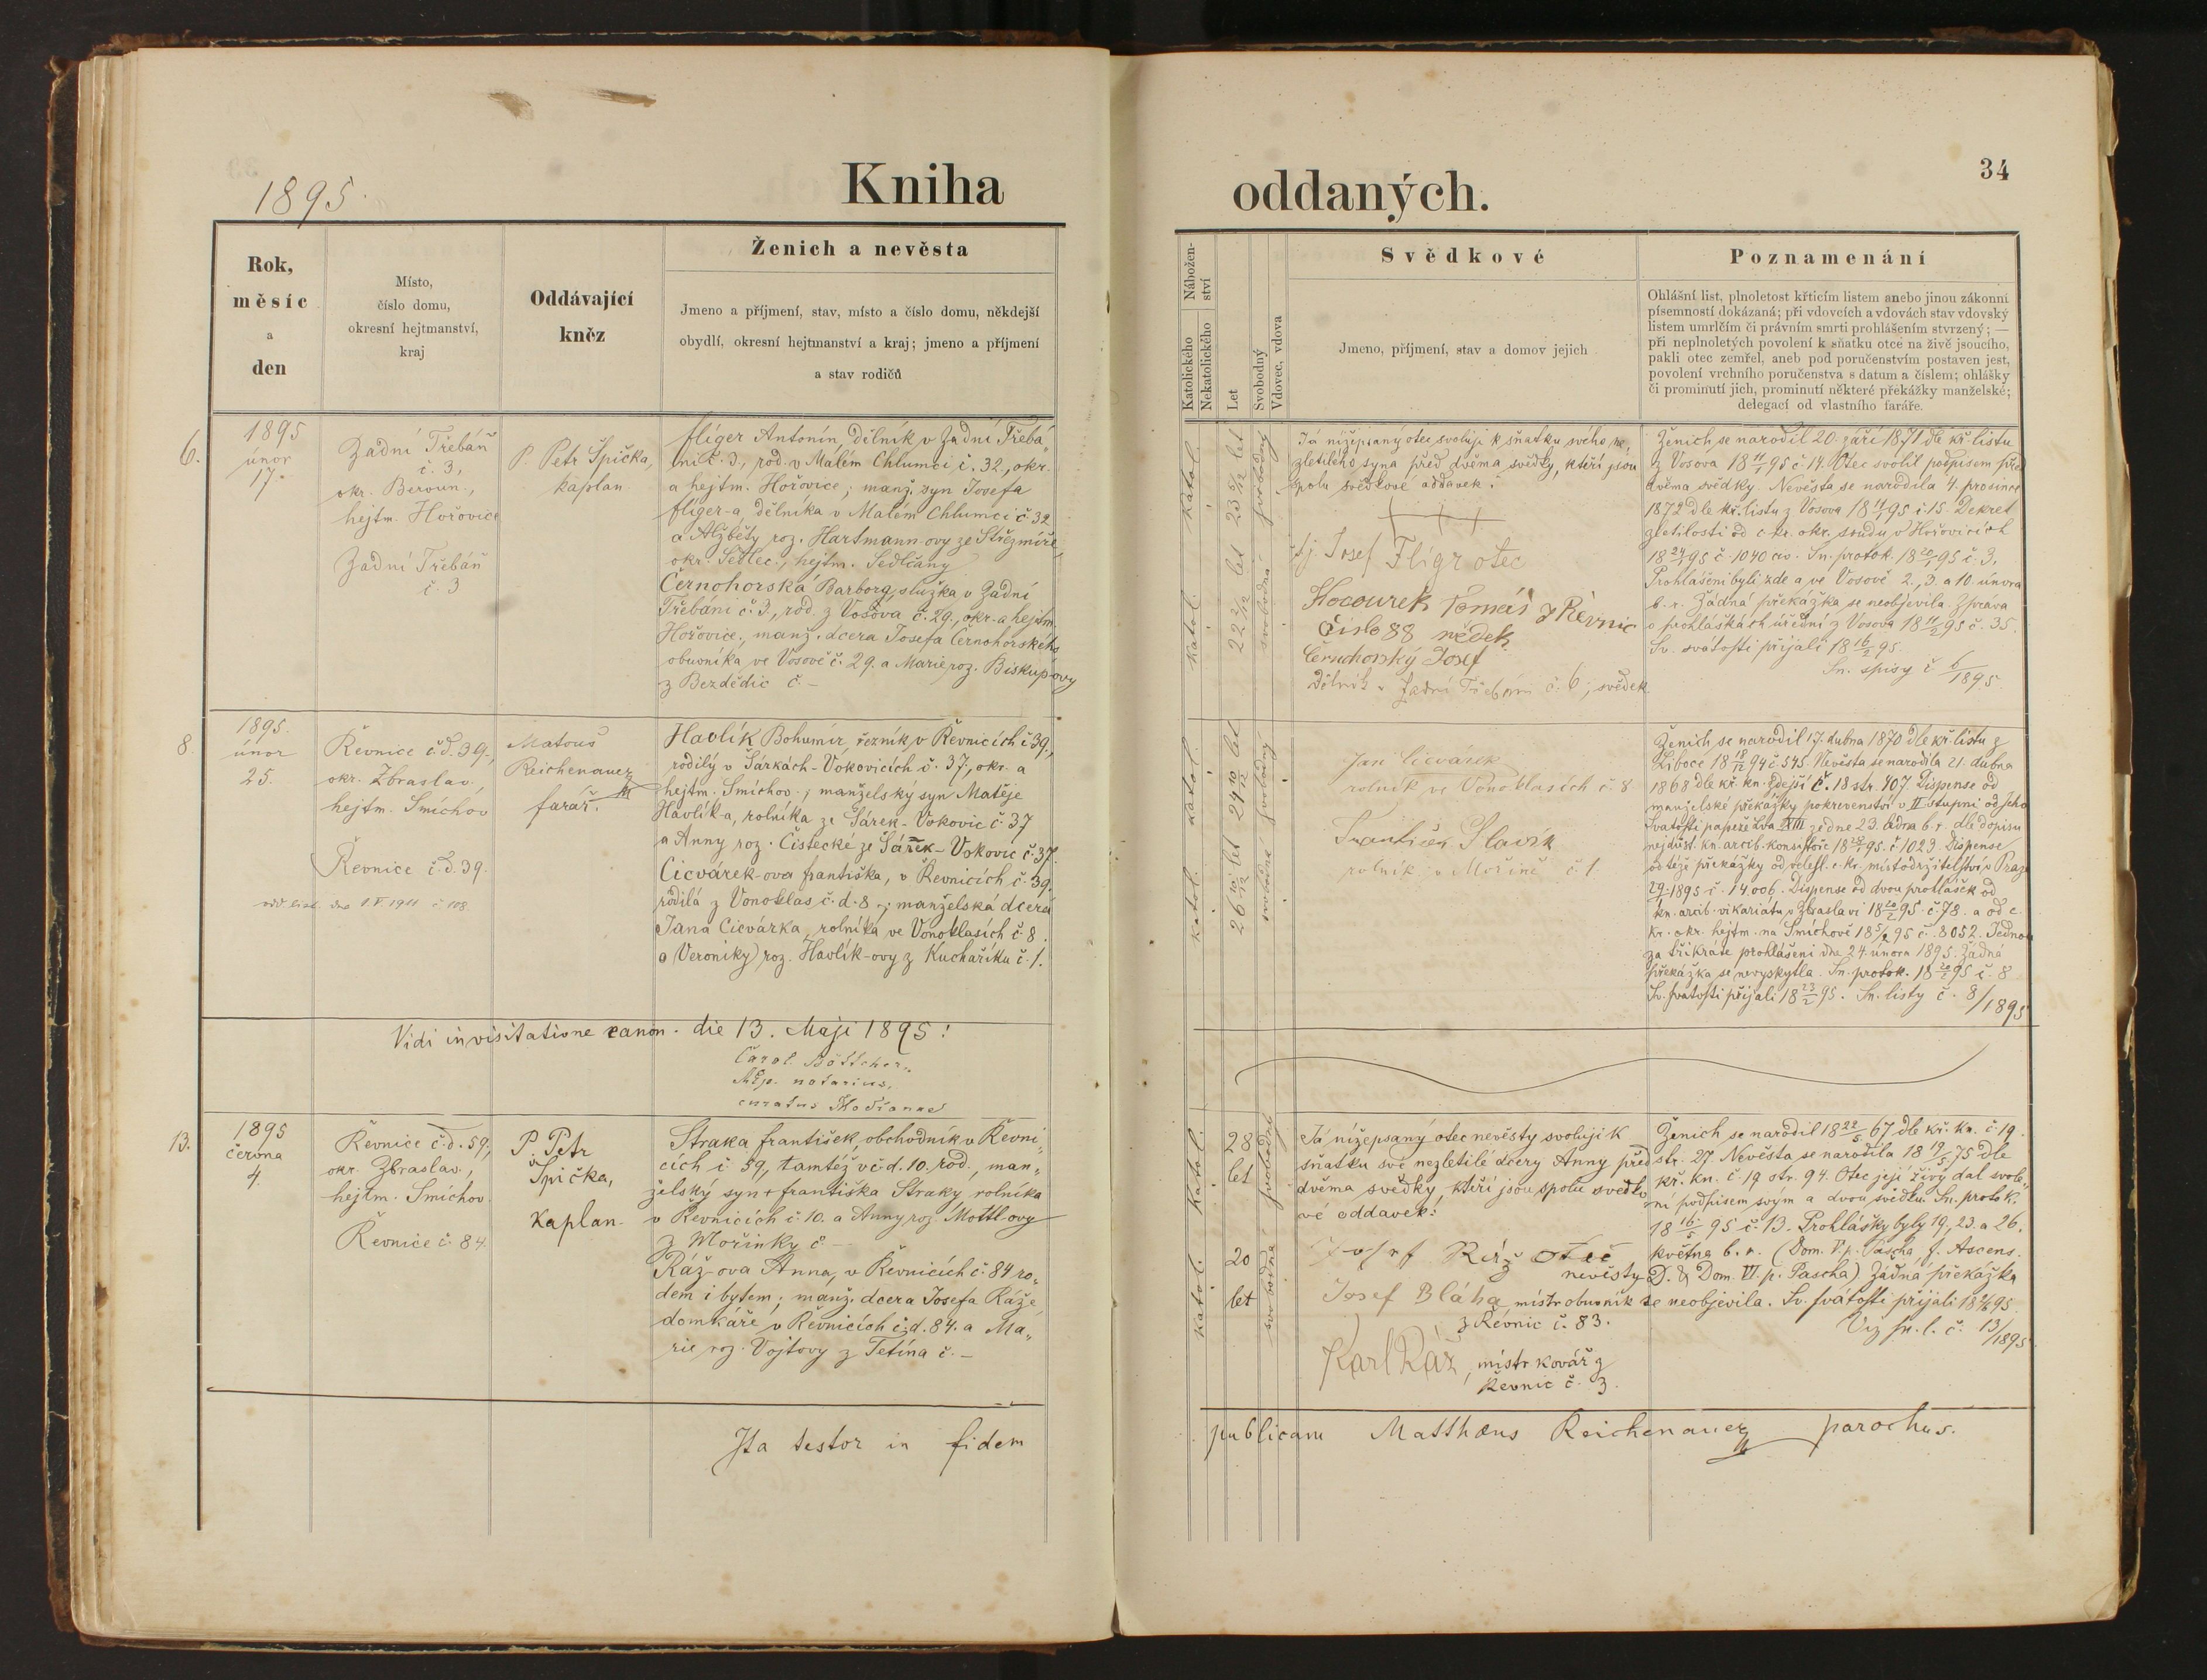 1895.
Kniha
Rok,
měsíc
a
den
Místo,
číslo domu,
okresní hejtmanství,
kraj
Oddávající
kněz
Ženich a nevěsta
Jmeno a příjmení, stav, místo a číslo domu, někdejší
obydlí, okresní hejtmanství a kraj; jmeno a příjmení
a stav rodičů
6.
1895
únor
17.
Zadní Třebáň
č. 3,
okr. Beroun.,
hejtm. Hořovice
Zadní Třebáň
č. 3
P. Petr Špička,
kaplan
Flíger Antonín, dělník v Zadní Třebá„
ni č. 3., rod. v Malém Chlumci č. 32, okr.
a hejtm. Hořovice; manž. syn Josefa
Flíger-a dělníka v Malém Chlumci č. 32
a Alžběty roz. Hartmann-ovy ze Střezmíře,
okr. Sedlec., hejtm. Sedlčany
Černohorská Barbora, služka v Zadní
Třebáni č. 3., rod. z Vosova č. 29., okr. a hejtm.
Hořovice., manž. dcera Josefa Černohorského
obuvníka ve Vosově č. 29. a Marie roz. Biskup-ovy
z Bezdědic č. –
8.
1895.
únor
25.
Řevnice č.d. 39.,
okr. Zbraslav,
hejtm. Smíchov
Řevnice č.d. 39.
odd. list. dne 1.V. 1911 č. 108.
Matouš
Reichenauer
farář.
Havlík Bohumír, řezník v Řevnicích č 39.,
rodilý v Šárkách-Vokovicích č. 37, okr. a
hejtm. Smíchov.; manželský syn Matěje
Havlík-a, rolníka ze Šárek-Vokovic č. 37
a Anny roz. Čistecké ze Šárek-Vokovic č. 37.
Cicvárek-ova Františka, v Řevnicích č. 39.
rodilá z Vonoklas č. d. 8.; manželská dcera
Jana Cicvárka, rolníka ve Vonoklasích č 8.
a Veroniky roz. Havlík-ovy z Kuchaříku č. 1.
Vidi in visitatione canon. die 13. Maji 1895!
Carol. Böttcher.
notarius,
curatus
13.
1895
června
4.
Řevnice č.d. 59.,
okr. Zbraslav.,
hejtm. Smíchov.
Řevnice č. 84.
P. Petr
Špička,
kaplan.
Straka František, obchodník v Řevni„
cích č 59, tamtéž v č d. 10. rod., man„
želský syn + Františka Straky, rolníka
v Řevnicích č. 10. a Anny roz Mottl-ovy
z Mořinky č –
Ráž-ova Anna, v Řevnicích č. 84 ro„
dem i bytem; manž. dcera Josefa Ráže,
domkáře v Řevnicích č.d. 84. a Ma„
rie roz. Vojtovy z Tetína č. –
Ita testor in fidem
oddaných.
34
Nábožen-
ství
Katolického
Nekatolického
Let
Svobodný
Vdovec, vdova
Svědkové
Jmeno, příjmení, stav a domov jejich
Poznamenání
Ohlášní list, plnoletost křticím listem anebo jinou zákonní
písemností dokázaná; při vdovcích a vdovách stav vdovský
listem umrlčím či právním smrti prohlášením stvrzený; —
při neplnoletých povolení k sňatku otce na živě jsoucího,
pakli otec zemřel, aneb pod poručenstvím postaven jest,
povolení vrchního poručenstva s datum a číslem; ohlášky
či prominutí jich, prominutí některé překážky manželské;
delegací od vlastního faráře.
katol. 23 5/12 let svobodný
katol. 22 2/12 let svobodná
Já nížepsaný otec svoluji k sňatku svého ne„
zletilého syna před dvěma svědky, kteří jsou
spolu svědkové oddavek:
+ + +
tj. Josef Flígr otec
Kocourek Tomáš z Řevnic
číslo 88 svědek
Černohorský Josef
Dělník v Zadní Třebáni č. 6, svědek
Ženich se narodil 20. září 1871 dle kř. listu
z Vosova 18 11/1 95 č. 14. Otec svolil podpisem před
dvěma svědky. Nevěsta se narodila 4. prosince
1872 dle kř. listu z Vosova 18 11/1 95 č. 15. Dekret
zletilosti od c.kr. okr. soudu v Hořovicích
18 24/1 95 č. 1040 civ. Sn. protok. 18 20/1 95 č. 3.
Prohlášeni byli zde a ve Vosově 2., 3. a 10. února
b. r. Žádná překážka se neobjevila. Zpráva
o prohláškách úřední z Vosova 18 11/2 95 č. 35.
Sv. svátosti přijali 18 16/2 95.
Sn. spisy č 6/1895.
katol. 24 10/12 let svobodný
katol. 26 10/12 let svobodná
Jan Cicvárek
rolník ve Vonoklasích č. 8
František Slavík
rolník v Mořině č. 1.
Ženich se narodil 17. dubna 1870 dle kř. listu z
Liboce 18 18/12 94 č 545. Nevěsta se narodila 21. dubna
1868 dle kř. kn. zdejší č. 18 str. 407. Dispense od
manželské překážky pokrevenství v II stupni od Jeho
Svatosti papeže Lva XIII ze dne 23. ledna b. r. dle dopisu
nejdůst. kn. arcib. konsistoře č. 1023. Dispense
od téže překážky od velesl. c. kr. místodržitelství v Praze
1895 č. 14.006. Dispense od dvou prohlášek od
kn. arcib. vikariátu v Zbraslavi 18 20/2 95 č. 78. a od c.
kr. okr. hejtm. na Smíchově 18 5/2 95 č. 8052. Jednou
za třikráte prohlášeni dne 24. února 1895. Žádná
překážka se nevyskytla. Sn. protok. 18 20/2 95 č. 8
Sv. svátosti přijali 18 23/2 95. Sn. listy č. 8/1895
katol. 28 let svobodný
katol. 20 let svobodná
Já nížepsaný otec nevěsty svoluji k
sňatku své nezletilé dcery Anny před
dvěma svědky, kteří jsou spolu svědko
vé oddavek:
Josef Ráž otec
nevěsty
Josef Bláha, mistr obuvník
z Řevnic č. 83.
Karl Ráž, mistr kovář z
Řevnic č. 3.
Ženich se narodil 18 22/5 67 dle kř. kn. č 19.
str. 27. Nevěsta se narodila 18 19/5 75 dle
kř. kn. č 19 str. 94. Otec její živý dal svole„
ní podpisem svým a dvou svědků. Sn. protok.
18 16/5 95 č. 13. Prohlášky byly 19., 23. a 26.
května b. r. (Dom. V. p. Pascha, f. Ascens.
D. & Dom. VI. p. Pascha) Žádná překážka
se neobjevila. Sv. svátosti přijali 18 95.
Viz sn. l. č. 13/1895
publicam Matthæus Reichenauer parochus.